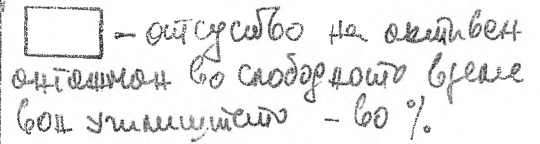 - отсуство на активен
ангажман во слободното време
вон училиштето - во %.